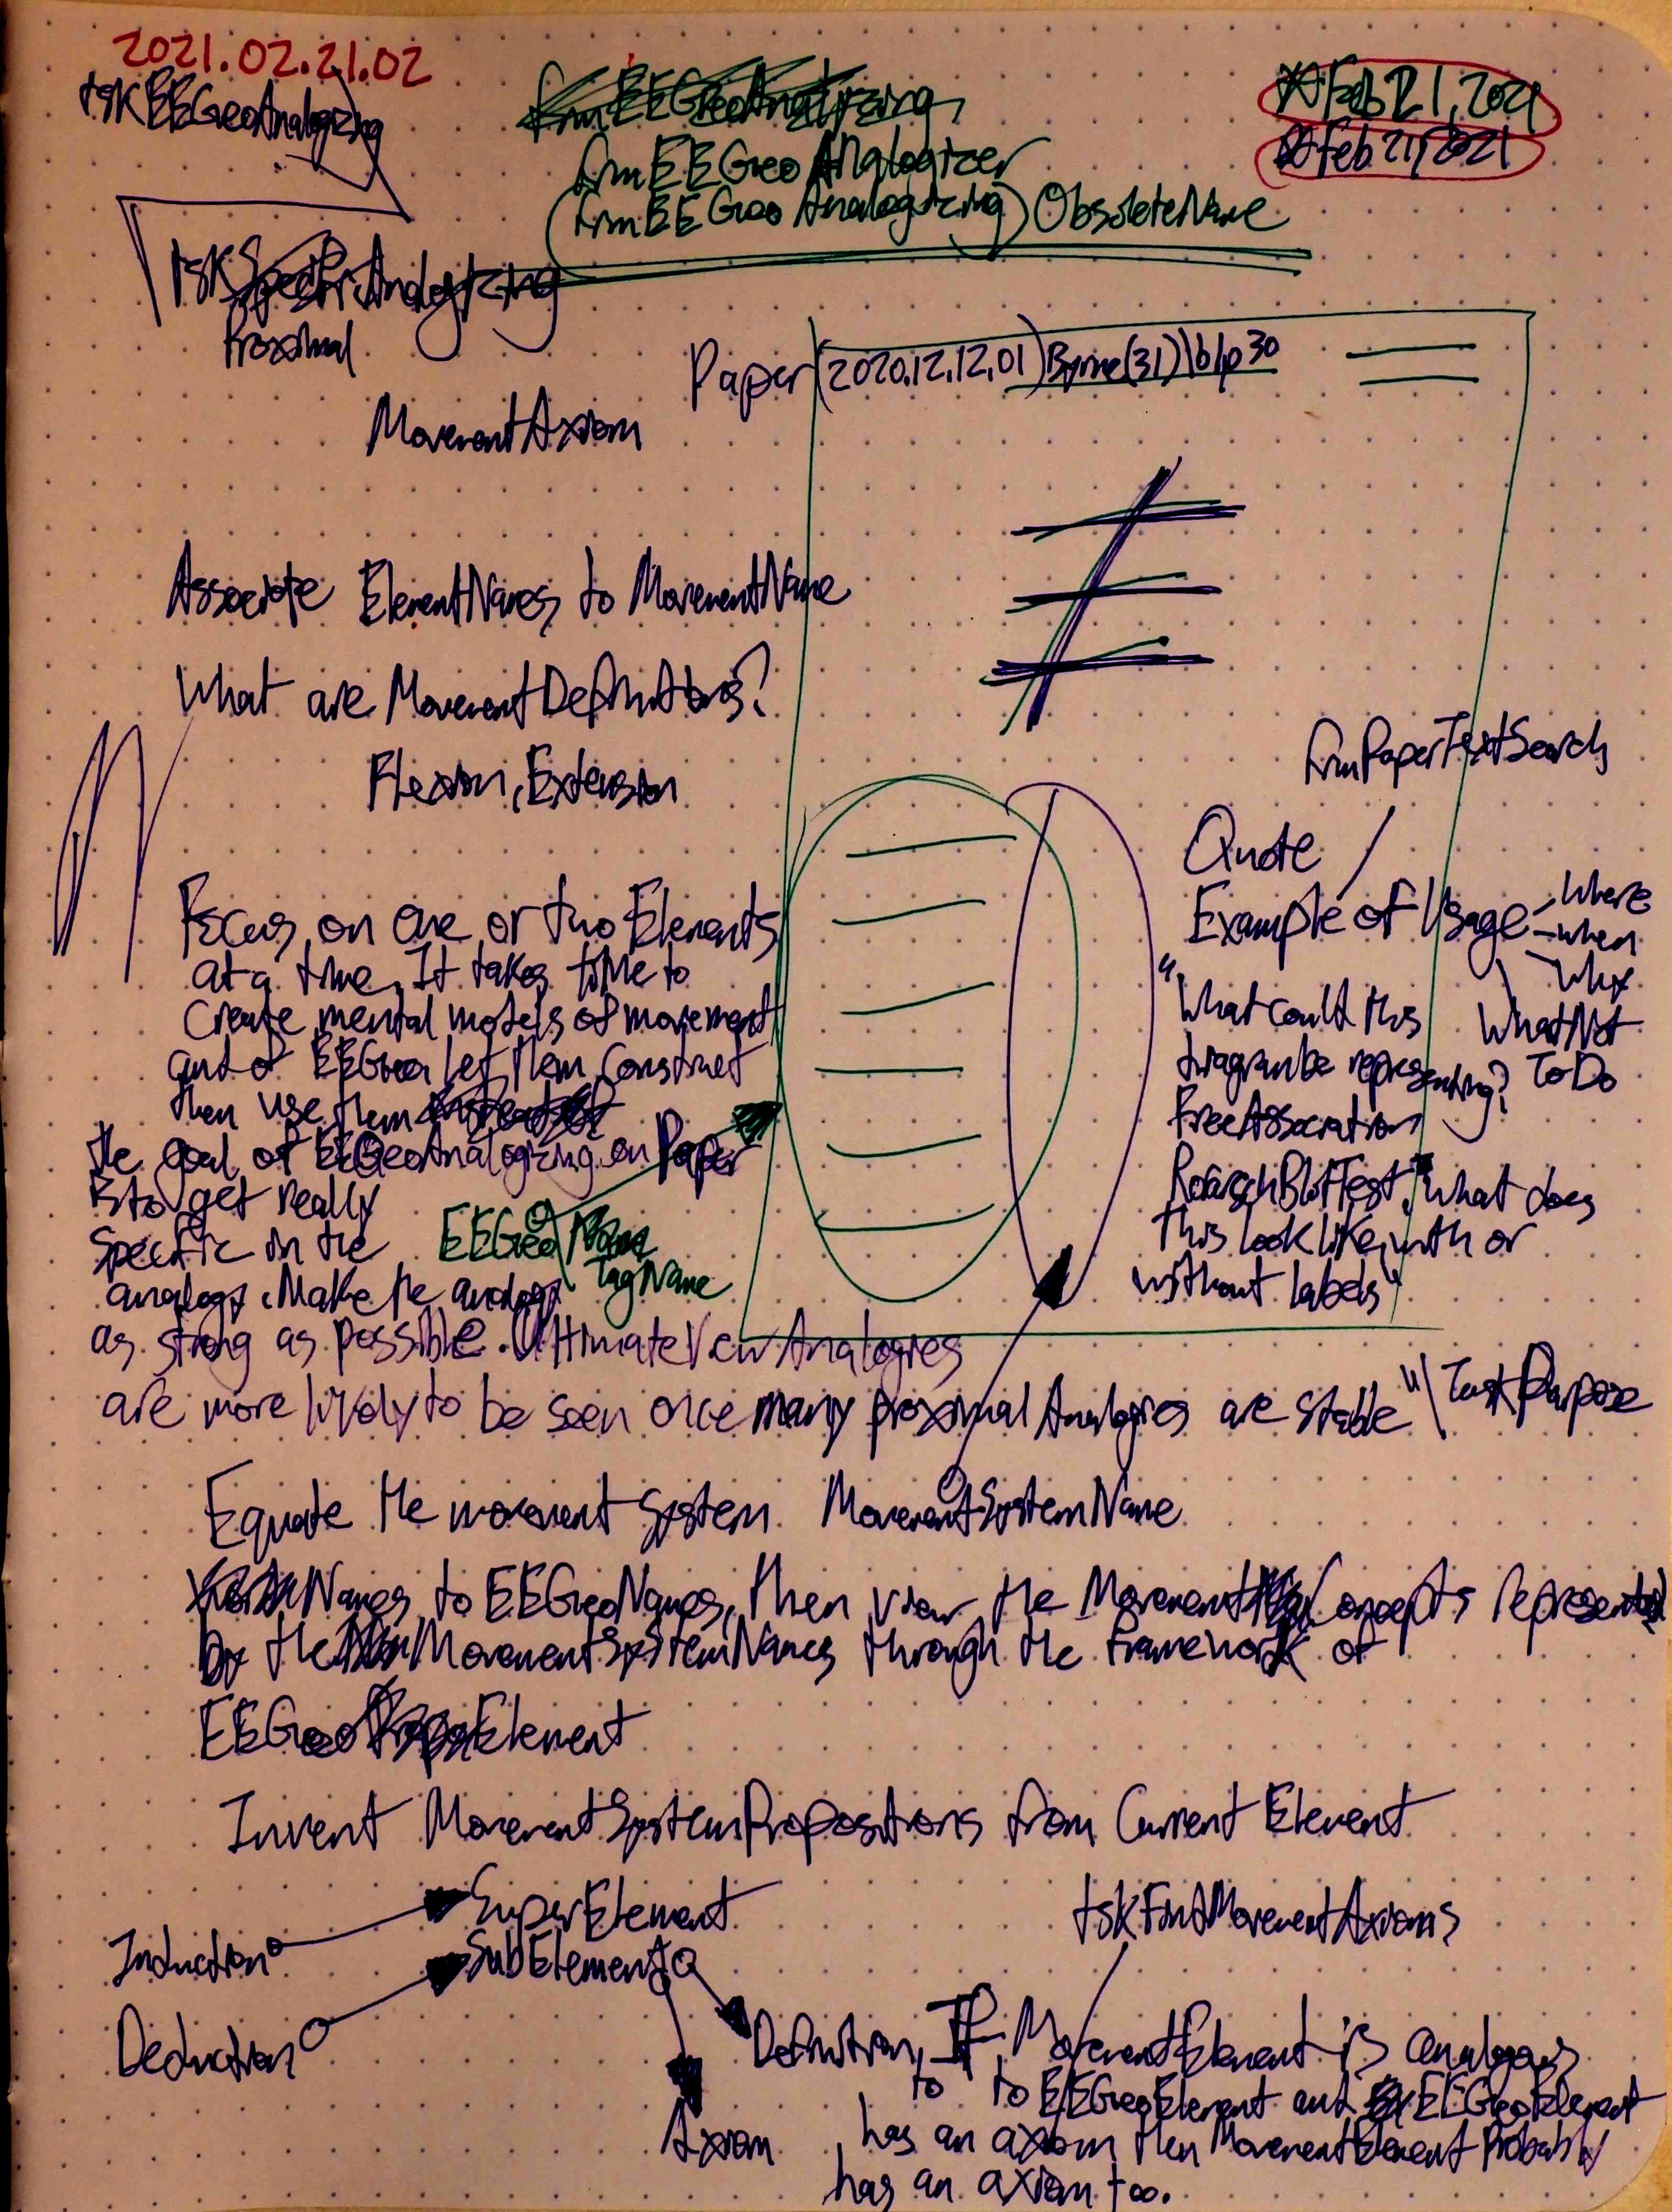 2021.02.21.02
tskEEGeoAnalogizing
frmEEGeoAnalogizing
frmEEGeoAnalogizer
(frmEEGeoAnalogizing) ObsoleteName
Feb 21, 2021
Feb 21, 2021
tskSpecificAnalogizing
Proximal
Paper(2020.12.12.01)Byrne(31)\blp30
MovementAxiom
Associate ElementNames to MovementName
What are MovementDefinitions?
Flexion, Extension
frmPaperTextSearch
Quote
Example of Usage
Where
when
Why
WhatNot
ToDo
Focus on one or two Elements
at a time. It takes time to
create mental models of movement
and of EEGeo let them construct
then use them
the goal of EEGeoAnalogizing on Paper
is to get really
specific in the
analogy. Make the analogy
as strong as possible. UltimateViewAnalogies
are more likely to be seen once many proximal Analogies are stable" \ TaskPurpose
EEGeo Name
TagName
"What could this
diagram be representing?
FreeAssociation
RorschBlotTest, "what does
this look like, with or
without labels"
Equate the movement system MovementSystemName
Names to EEGeoNames, then view the Movement Concepts represented
by the MovementSystemNames through the framework of
EEGeo Element
Invent MovementSystemPropositions from Current Element
Induction
SuperElement
Deduction
SubElement
tskFindMovementAxioms
Definition, If MovementElement is analogous
to to EEGeoElement and EEGeoElement
Axiom
has an axiom then MovementElement Probably
has an axiom too.